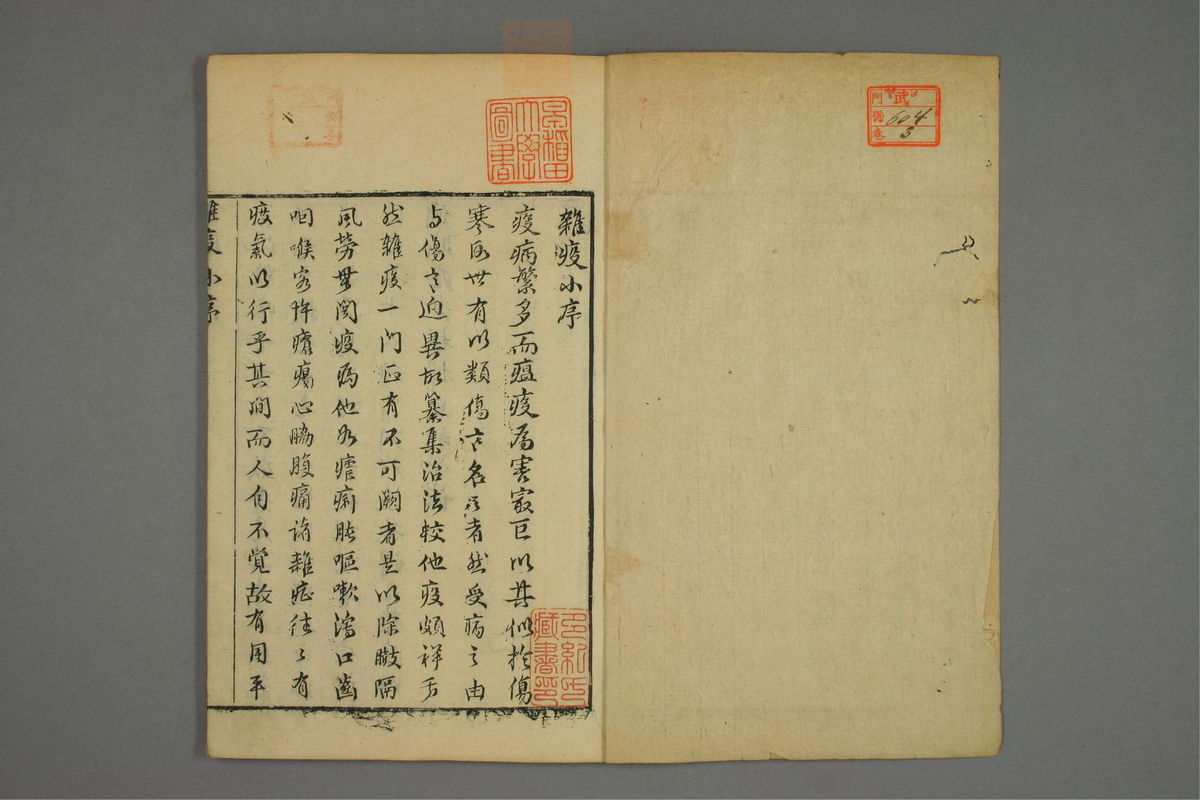 雜疫小序
疫病繁多而瘟疫為害最巨以其似於傷
寒有以類傷名者然受病之由
与傷迥異故纂集治法較他疫頗詳
然雜疫一門正有不可闕者是以除
風勞無関疫為他如瘧痢脹嘔嗽瀉口齒
咽喉瘡瘍心脇腹痛諸雜症往〻有
疫氣以行乎其間而人自不覺故有用平
雜疫小序
早稻田
大學
圖書
藏書印
門
號
卷
604
3